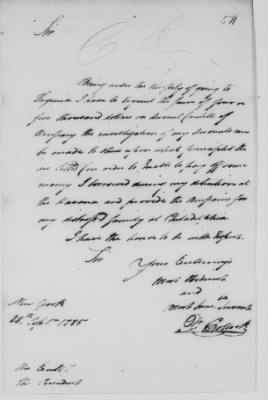 511
Sir
Being under the necessity of going to
Virginia I have to request the sum of four or
five thousand dollars on account untill
necessary the investigation of my accounts can
be made to show upon which principles they
are settled in order to Enable to pay off some
money I borrowed during my detention at
the Havana and provide the necessaries for
my distressed family at Philadelphia
I have the honor to be with Respect
Sir
Your Excellency's
Most Obedient
and
most hum. Servant
Or. Pollock
New York
28th Sept 1785
His Excell.y
The President